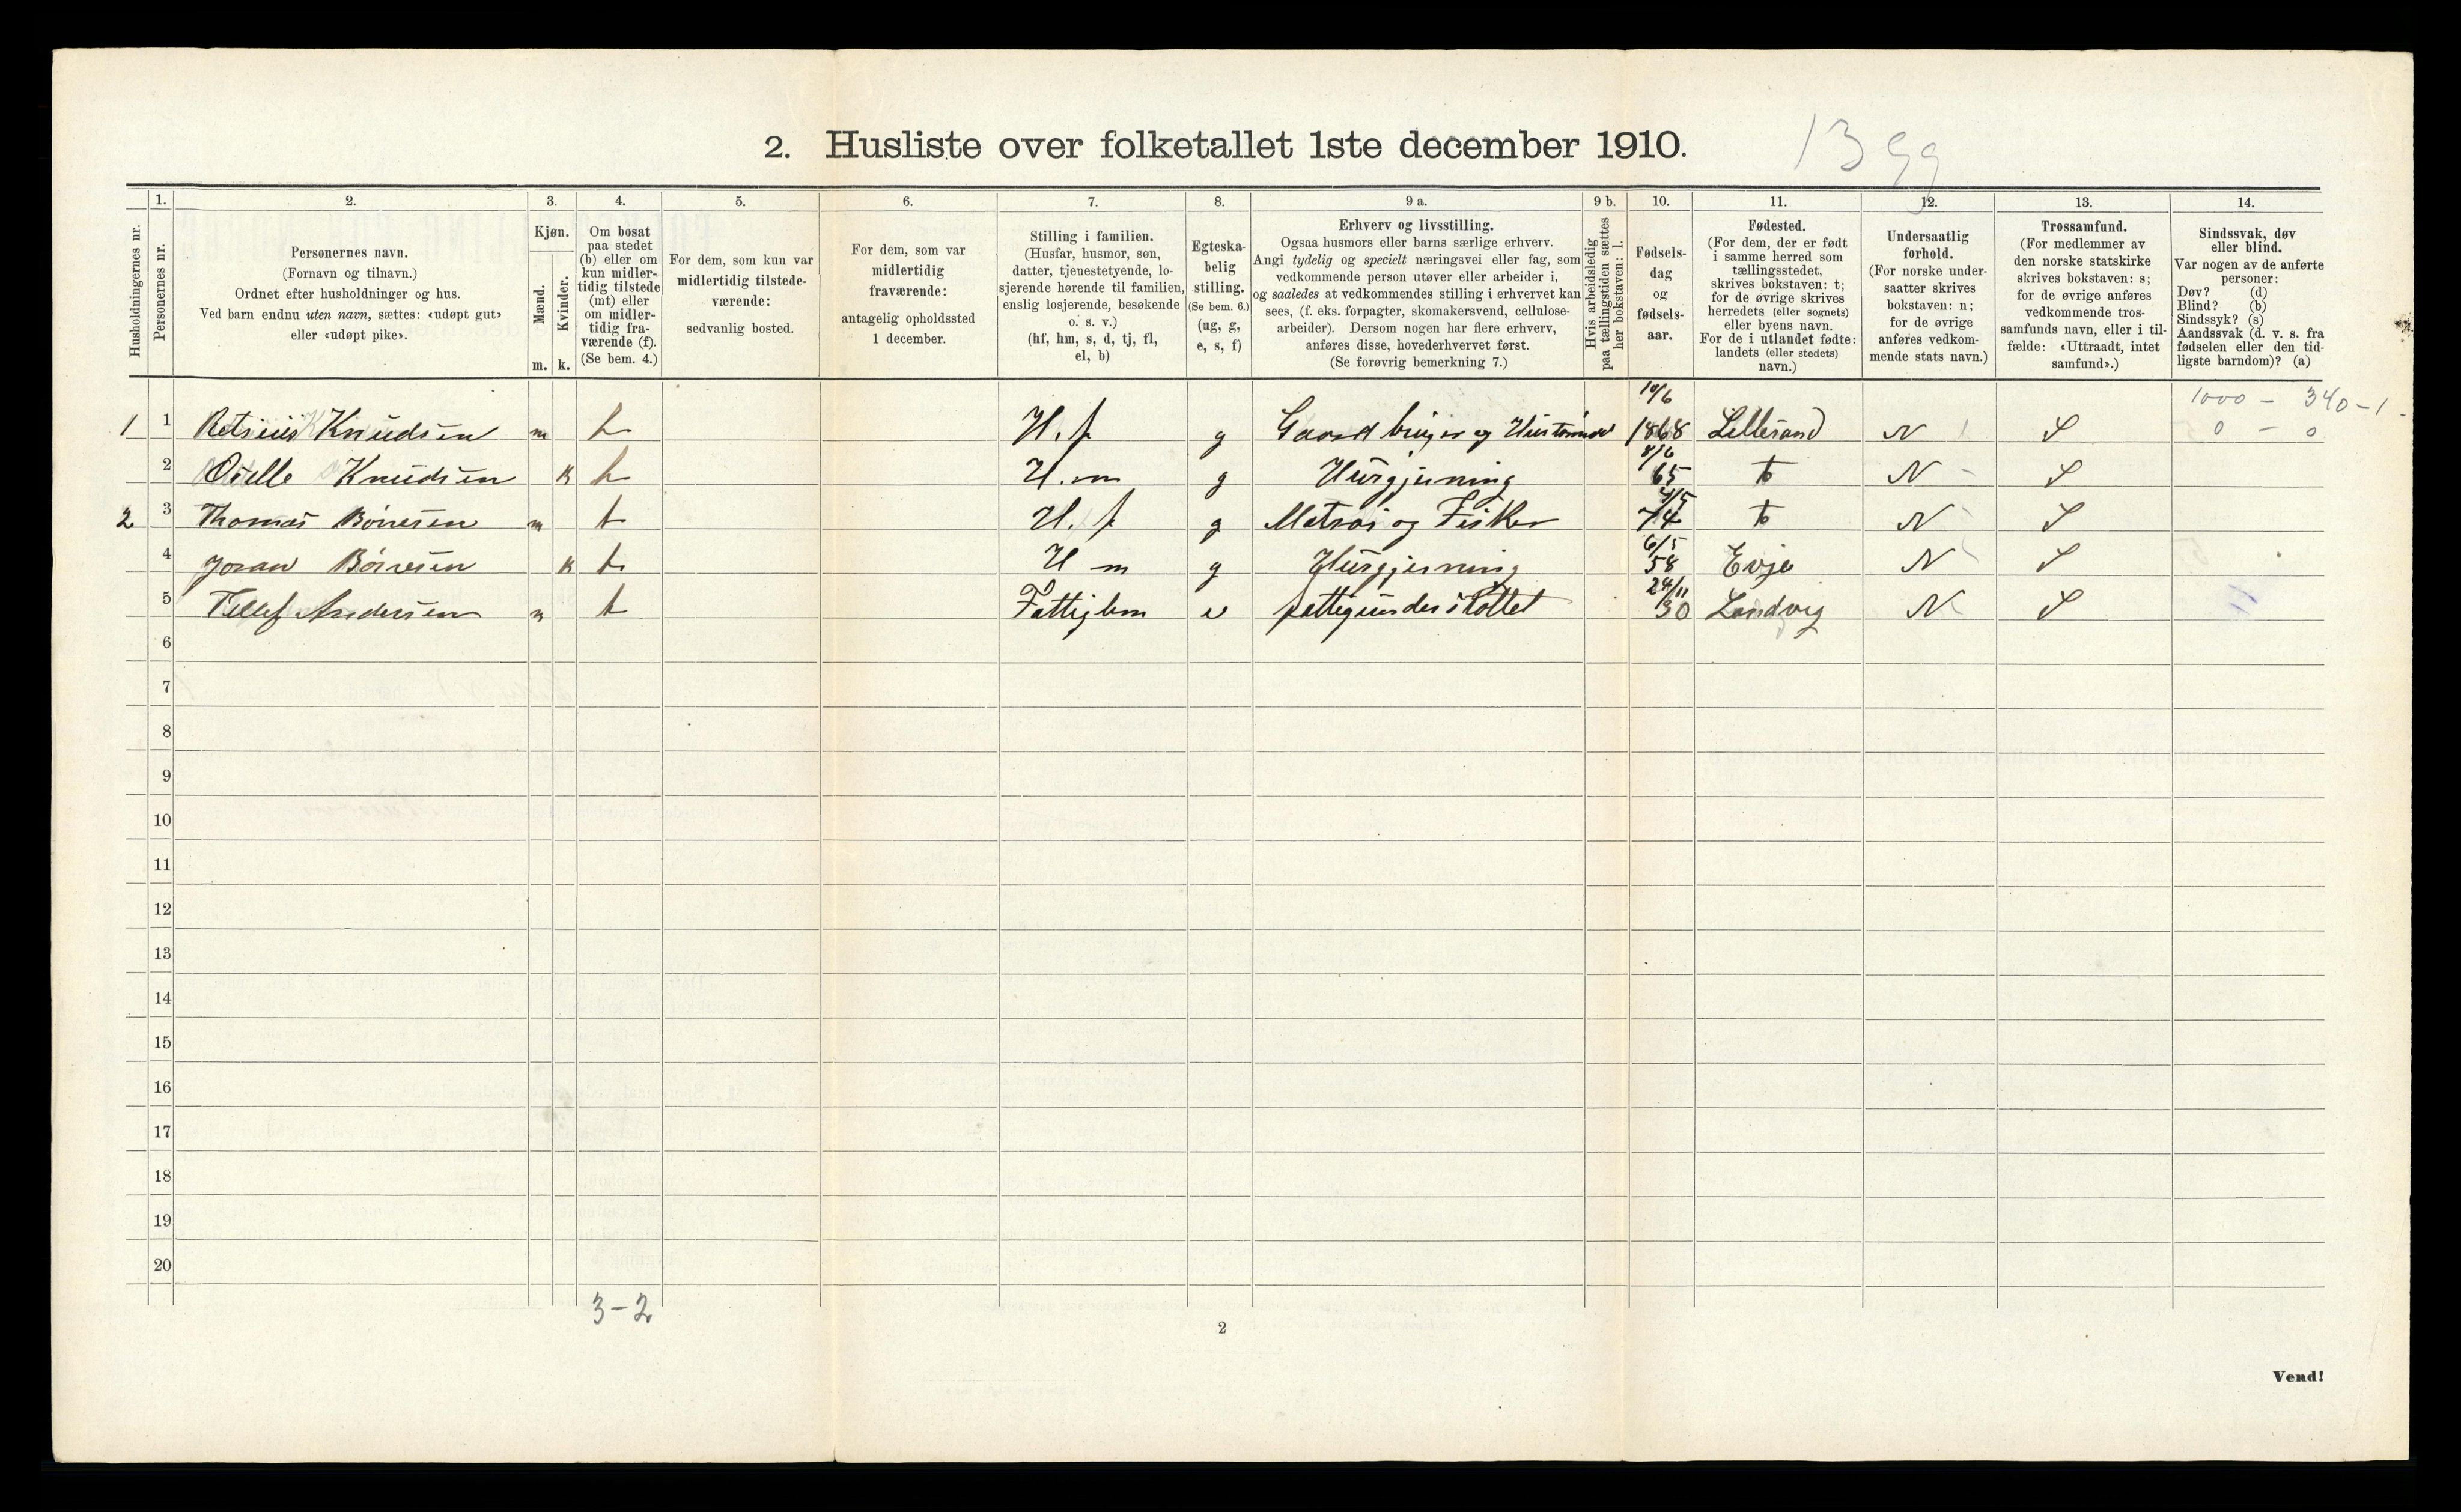 2. Husliste over folketallet 1ste december 1910.
Husholdningernes nr.
1.
Personernes nr.
2.
Personernes navn.
(Fornavn og tilnavn.)
Ordnet efter husholdninger og hus.
Ved barn endnu uten navn, sættes: «udøpt gut»
eller «udøpt pike».
3.
Kjøn.
Mænd.
m.
Kvinder.
k.
4.
Om bosat
paa stedet
(b) eller om
kun midler-
tidig tilstede
(mt) eller
om midler-
tidig fra-
værende (f).
(Se bem. 4.)
5.
For dem, som kun var
midlertidig tilstede-
værende:
sedvanlig bosted.
6.
For dem, som var
midlertidig
fraværende:
antagelig opholdssted
1 december.
7.
Stilling i familien.
(Husfar, husmor, søn,
datter, tjenestetyende, lo-
sjerende hørende til familien,
enslig losjerende, besøkende
o. s. v.)
(hf, hm, s, d, tj, fl,
el, b)
8.
Egteska-
belig
stilling.
(Se bem. 6.)
(ug, g,
e, s, f)
9 a.
Erhverv og livsstilling.
Ogsaa husmors eller barns særlige erhverv.
Angi tydelig og specielt næringsvei eller fag, som
vedkommende person utøver eller arbeider i,
og saaledes at vedkommendes stilling i erhvervet kan
sees, (f. eks. forpagter, skomakersvend, cellulose-
arbeider). Dersom nogen har flere erhverv,
anføres disse, hovederhvervet først.
(Se forøvrig bemerkning 7.)
9 b.
Hvis arbeidsledig
paa tællingstiden sættes
her bokstaven: l.
10.
Fødsels-
dag
og
fødsels-
aar.
11.
Fødested.
(For dem, der er født
i samme herred som
tællingsstedet,
skrives bokstaven: t;
for de øvrige skrives
herredets (eller sognets)
eller byens navn.
For de i utlandet fødte:
landets (eller stedets)
navn.)
12.
Undersaatlig
forhold.
(For norske under-
saatter skrives
bokstaven: n;
for de øvrige
anføres vedkom-
mende stats navn.)
13.
Trossamfund.
(For medlemmer av
den norske statskirke
skrives bokstaven: s;
for de øvrige anføres
vedkommende tros-
samfunds navn, eller i til-
fælde: «Uttraadt, intet
samfund».)
14.
Sindssvak, døv
eller blind.
Var nogen av de anførte
personer:
Døv? (d)
Blind? (b)
Sindssyk? (s)
Aandssvak (d. v. s. fra
fødselen eller den tid-
ligste barndom)? (a)
1000 - 340-1
0 - 0
1 1 Knudsen m H.f g 1868 Lillesand N S
2 Knudsen k H.m g Husgjerning 65 t N S
2 3 Thomas Börresen m H.f g Matros og Fisker 74 t N S
4 Börresen k H m g Husgjerning 6/5 58 Evje N S
5 Tellef Andersen m Fattiglem e fattigunderstöttet 24/11 30 Landvig N S
6
7
8
9
10
11
12
13
14
15
16
17
18
19
20
3-2
2
Vend!